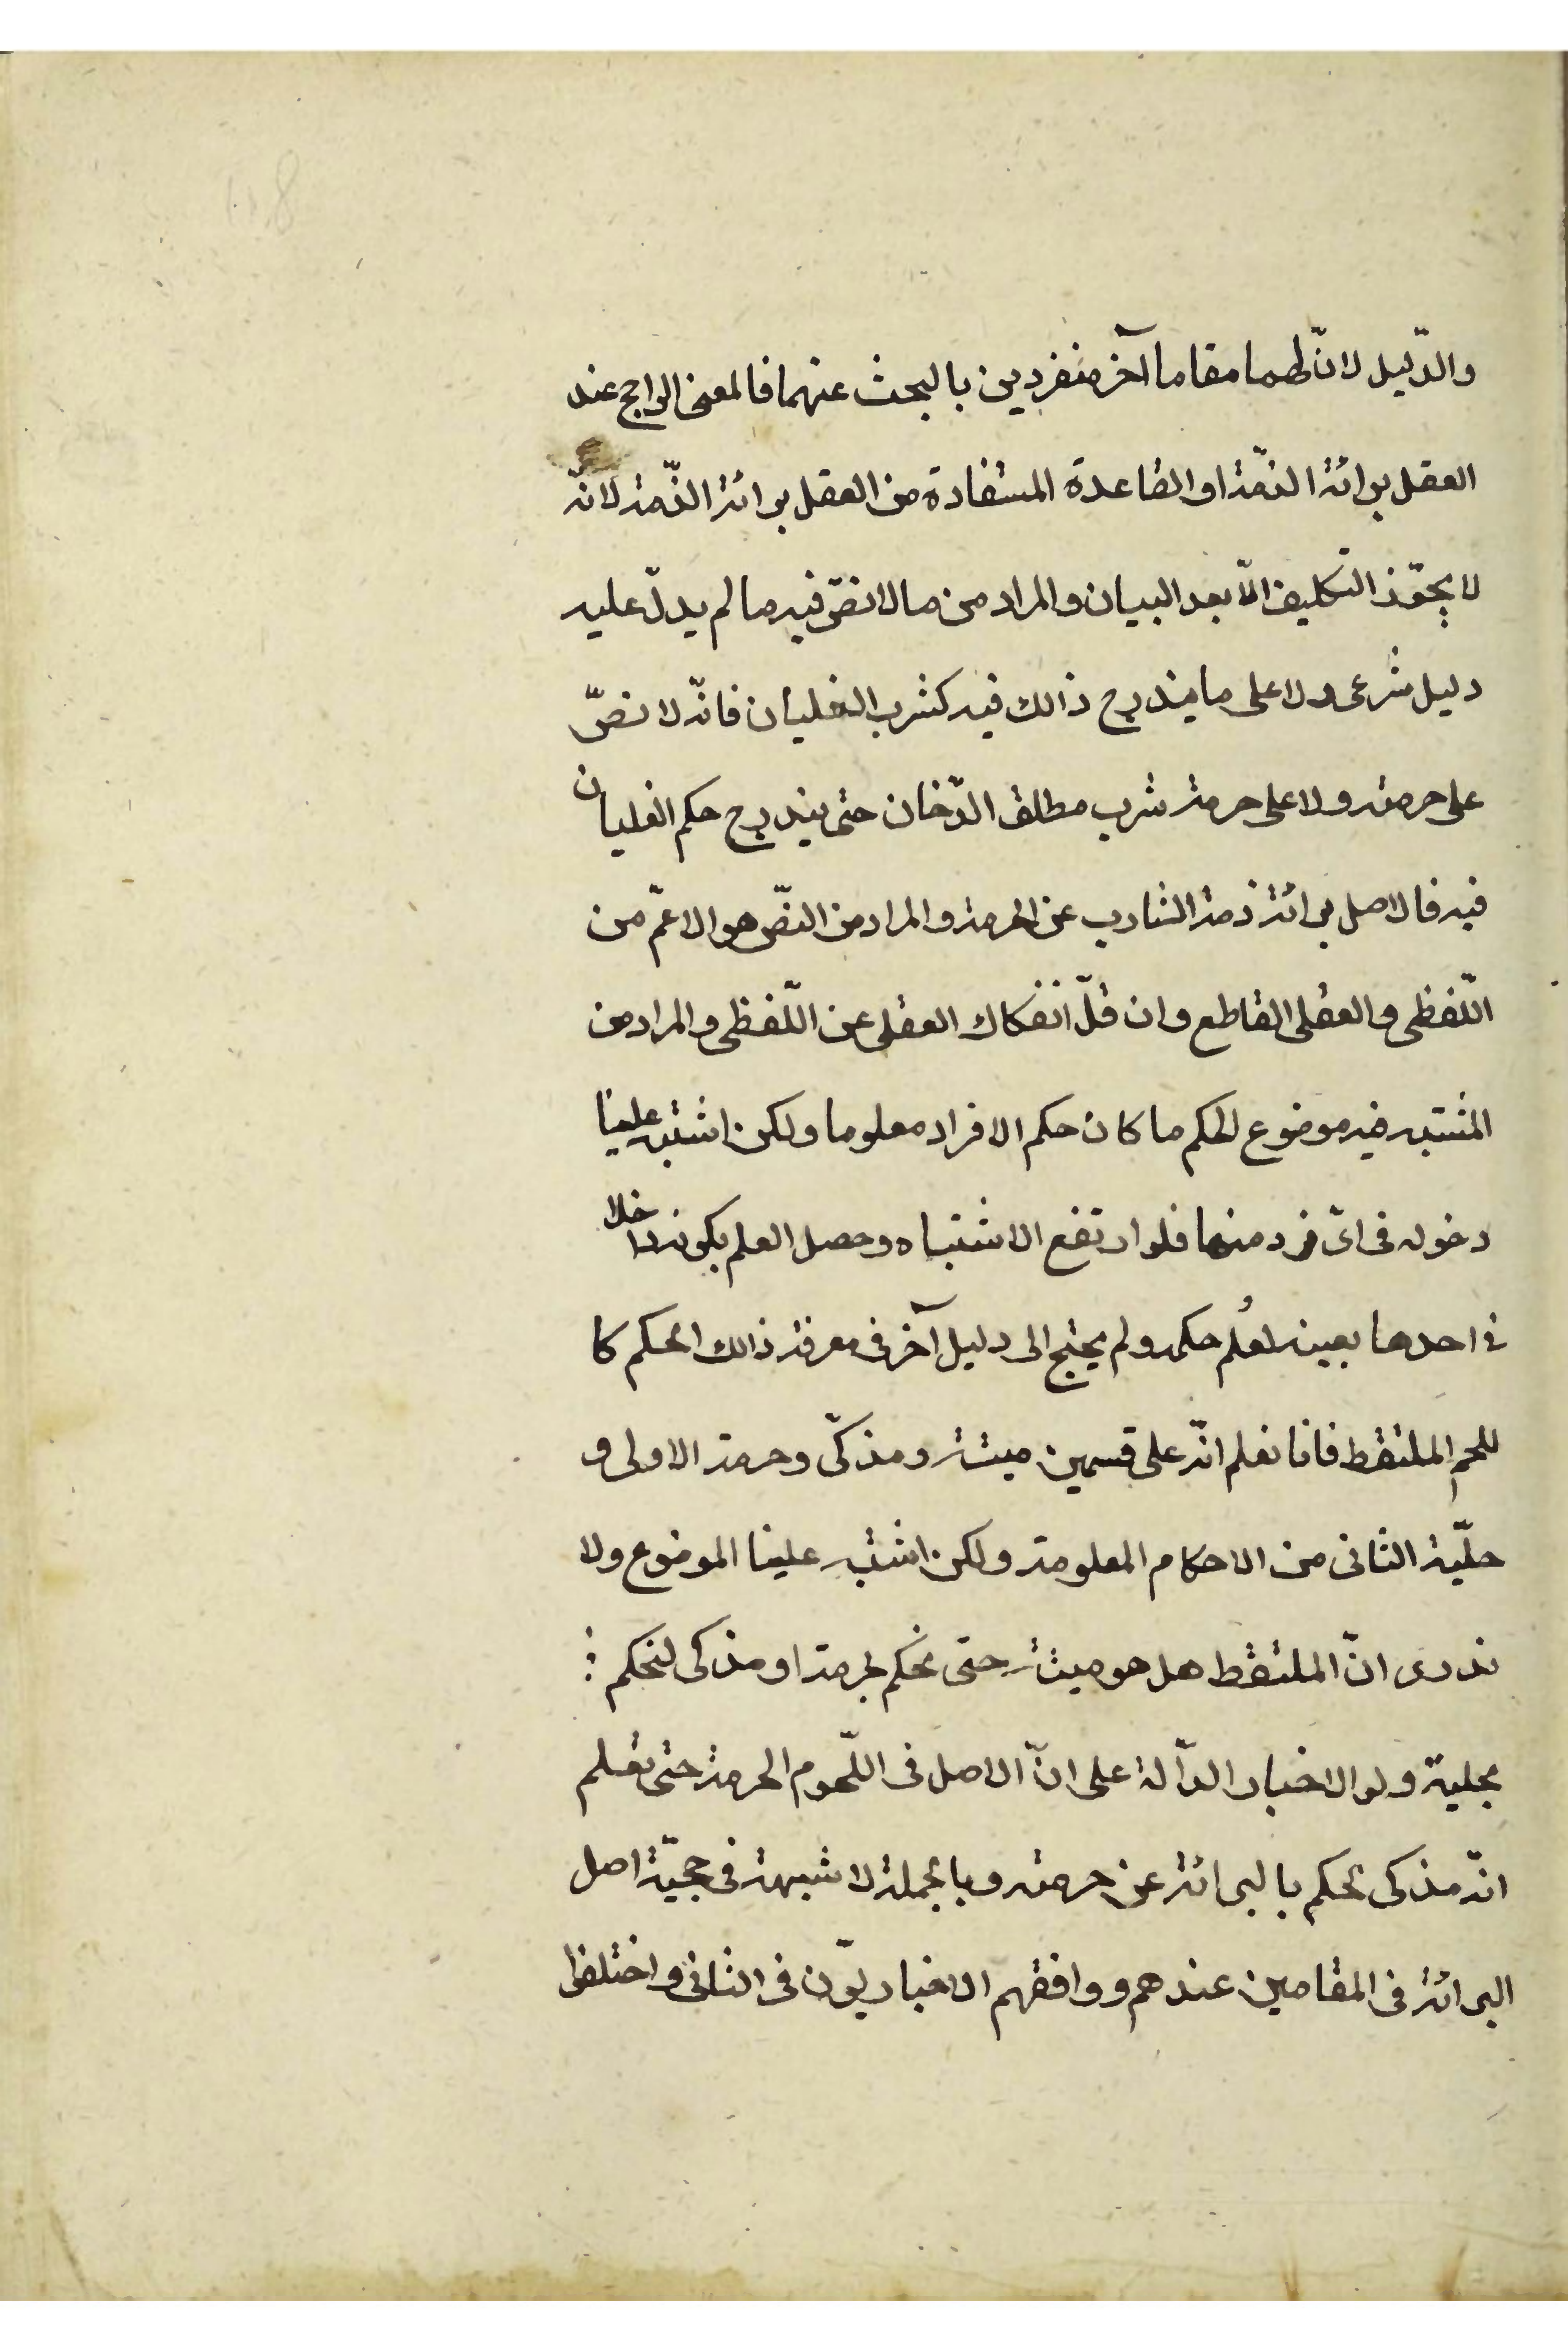 والدّليل لانّ لهما مقاما آخر منفردين بالبحث عنهما فالمعنى الراجح عند
العقل برائة الذمّة او القاعدة المستفادة من العقل برائة الذّمة لانّه
لا يجوّز التكليف الّا بعد البيان والمراد من ما لا نصّ فيه ما لم يدلّ عليه
دليل شرعى ولا على ما يندرج ذالك فيه كشرب الغليان فانّه لا نصّ
على حرمته ولا على حرمة شرب مطلق الدّخان حتى يندرج حكم الغليان
فيه فالاصل برائة ذمة الشارب عن الحرمة والمراد من النصّ هو الاعمّ من
اللّفظى والعقلى القاطع وان قلّ انفكاك العقلى عن اللّفظى والمراد من
المشتبه فيه موضوع الحكم ما كان حكم الافراد معلوما ولكن اشتبه علينا
دخوله فى اىّ فرد منها فلو ارتفع الاشتباه وحصل العلم بكونه داخلا
فى احدها بعينه لعُلم حكمه ولم يحتج الى دليل آخر فى معرفة ذالك الحكم كا
للحم الملتقط فانا نعلم انّه على قسمين ميتة ومذكّى وحرمة الاولى و
حلّية الثانى من الاحكام المعلومة ولكن اشتبه علينا الموضوع ولا
ندرى انّ الملتقط هل هو ميتة حتى نحكم بحرمة او مذكى لنحكم
بحلية ولو الاخبار الدّالة على انّ الاصل فى اللّحوم الحرمة حتى نعلم
انّه مذكى لحكم بالبرائة عن حرمته وبالجملة لا شبهة فى حجيّة اصل
البرائة فى المقامين عندهم ووافقهم الاخباريّون فى الثانى واختلفوا